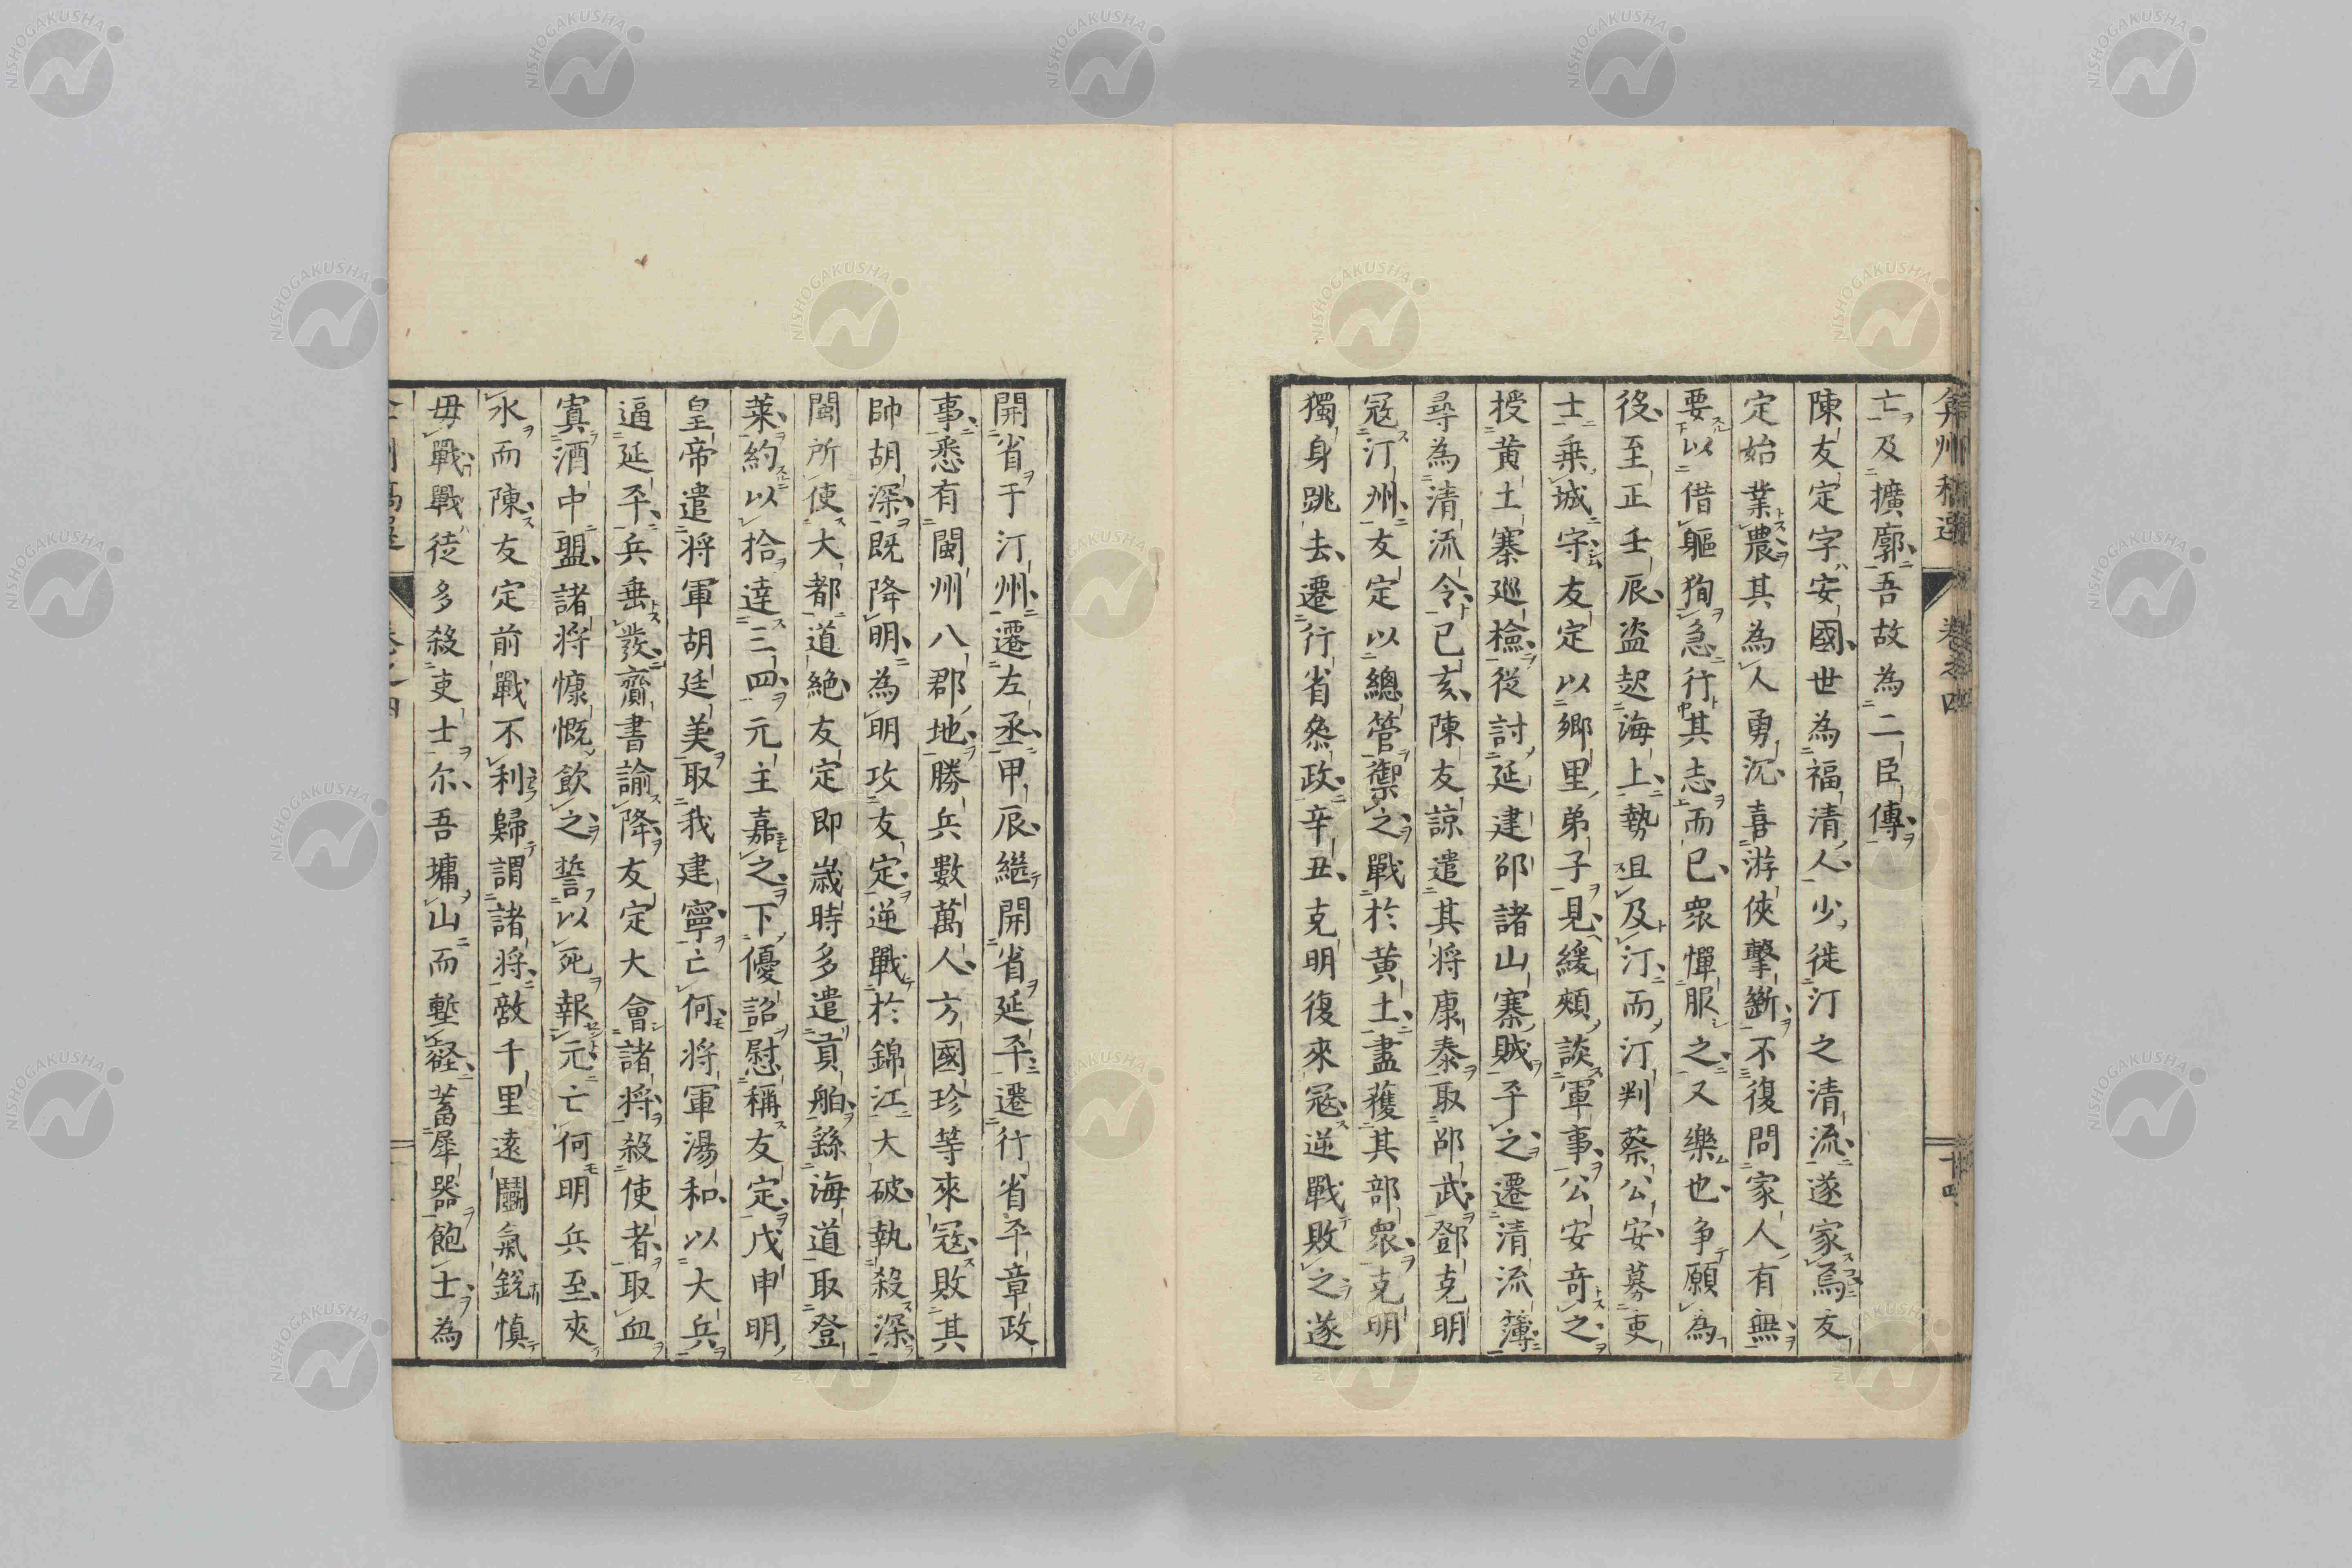 弇州稿選 卷之四 十四
亡及擴廓吾故為二臣傳
陳友定字安國世為福清人少徙汀之清流遂家焉友
定始業農其為人勇沉喜游俠擊斷不復問家人有無
要以借軀狥急行其志而已眾憚服之又樂也争願為
役至正壬辰盗起海上勢且及汀而汀判蔡公安募吏
士乗城守友定以郷里弟子見緩頰談軍事公安竒之
授黄土寨廵檢從討延建邵諸山寨賊平之遷清流簿
尋為清流令已亥陳友諒遣其将康泰取邵武鄧克明
冦汀州友定以總管禦之戰於黄土盡獲其部眾克明
獨身跳去遷行省叅政辛丑克明復來冦逆戰敗之遂
開省于汀州遷左丞甲辰継開省延平遷行省平章政
事悉有閩州八郡地勝兵數萬人方國珍等來冦敗其
帥胡深既降明為明攻友定逆戰於錦江大破執殺深
閩所使大都道絶友定即歳時多遣貢舶繇海道取登
莱約以拾逹三四元主嘉之下優詔慰稱友定戊申明
皇帝遣将軍胡廷美取我建寧亡何将軍湯和以大兵
逼延平兵垂發齎書諭降友定大會諸将殺使者取血
寘酒中盟諸将慷慨飲之誓以死報元亡何明兵至夾
水而陳友定前戰不利歸謂諸将敵千里逺鬭氣銳慎
毋戰戰徒多殺吏士尓吾墉山而塹谿蓄犀器飽士為